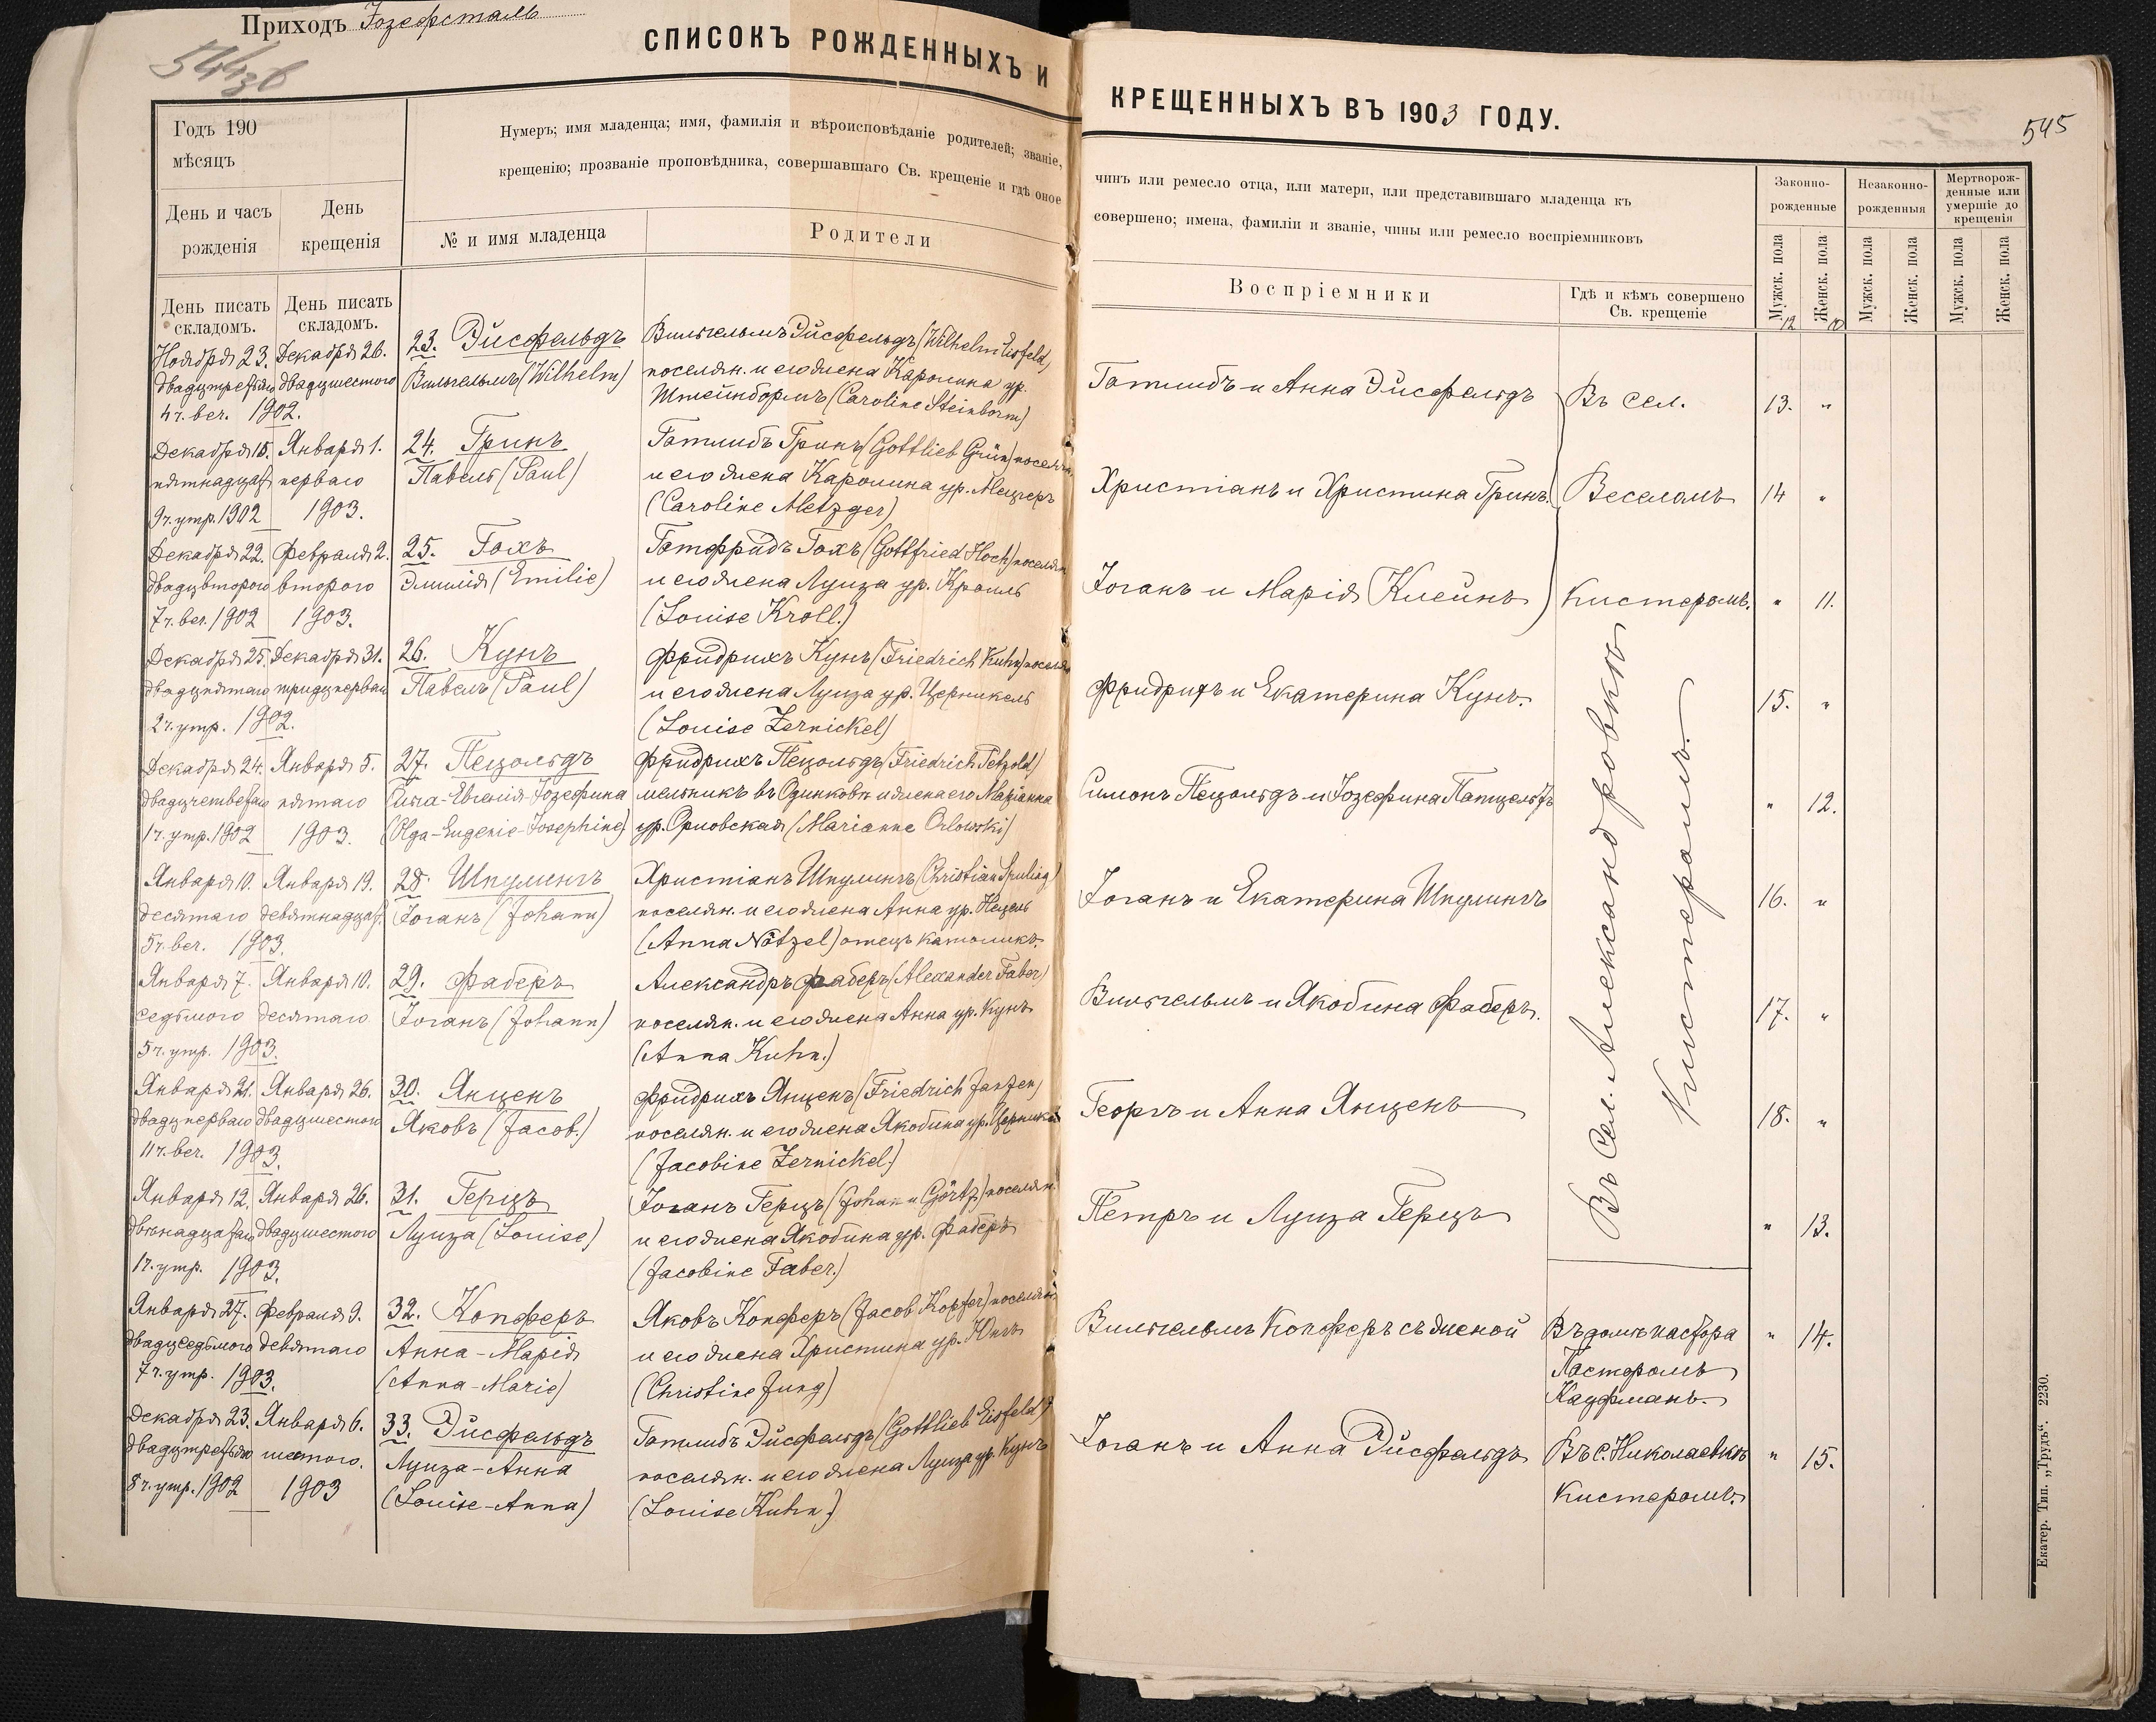 Приходъ Іозефсталь
544об
СПИСОКЪ РОЖДЕННЫХЪ И
Годъ 190
мѣсяцъ
День и часъ рожденія
День крещенія
Нумеръ; имя младенца; имя, фамилія и вѣроисповѣданіе родителей; званіе,
крещенію; прозваніе проповѣдника, совершавшаго Св. крещеніе и гдѣ оное
№ и имя младенца
Родители
День писать складомъ.
День писать складомъ.
Ноября 23. Декабря 26. 23. Эйсфельдъ Вильгельмъ Эйсфельдъ (Wilhelm Eisfeld,)
двадцтретьяго двадцшестого Вильгельмъ (Wilhelm) поселян. и его жена Каролина ур.
4 ч. веч. 1902. Штейнборнъ (Caroline Steinborn)
Декабря 15. Января 1. 24. Гринъ Готлибъ Гринъ (Gottlieb Grün) поселян.
пятнадцат перваго Павелъ (Paul) и его жена Каролина ур. Мецгеръ
9 ч. утр. 1902 1903. (Caroline Metzger)
Декабря 22. Февраля 2. 25. Гохъ Готфридъ Гохъ (Gottfried Hoch) поселян
двадцвторого второго Эмилія (Emilie) и его жена Луиза ур. Кролль
7 ч. веч. 1902 1903. (Louise Kroll.)
Декабря 25. Декабря 31. 26. Кунъ Фридрихъ Кунъ (Friedrich Kuhn) поселян
двадцпятаго тридцперваго Павелъ (Paul) и его жена Луиза ур. Церникель
2 ч. утр. 1902. (Louise Zernickel)
Декабря 24. Января 5. 27. Пецольдъ Фридрихъ Пецольдъ (Friedrich Petzold)
двадцчетвертаго пятаго Евгенія-Іозефина мельникъ въ Одинковкѣ и жена его Маріанна
1 ч. утр. 1902 1903. (Olga-Eugenie-Josephine) ур. Орловская (Marianne Orlowski)
Января 10. Января 19. 28. Шпулингъ Христіанъ Шпулингъ (Christian Spuling)
десятаго девятнадцат. Іоганъ (Johann) поселян. и его жена Анна ур. Нецель
5 ч. веч. 1903. (Anna Nötzel) отецъ католикъ.
Января 7. Января 10. 29. Фаберъ Александръ Фаберъ (Alexander Faber)
седьмого десятаго Іоганъ (Johann) поселян. и его жена Анна ур. Кунъ
5 ч. утр. 1903. (Anna Kuhn.)
Января 21. Января 26. 30. Янценъ Фридрихъ Янценъ (Friedrich Janzen)
двадцперваго двадцшестого Яковъ (Jacob.) поселян. и его жена Якобина ур. Церникель
11 ч. веч. 1903. (Jacobine Zernickel.)
Января 12. Января 26. 31. Герцъ Іоганъ Герцъ (Johann Görtz) поселян.
двѣнадцатаго двадцшестого Луиза (Louise) и его жена Якобина ур. Фаберъ
1 ч. утр. 1903. (Jacobine Faber.)
Января 27. Февраля 9. 32. Копферъ Яковъ Копферъ (Jacob Kopfer) поселян
двадцседьмого девятаго Анна-Марія и его жена Христина ур. Юнгъ
7 ч. утр. 1903. (Anna-Marie) (Christine Jung)
Декабря 23. Января 6. 33. Эйсфельдъ Готлибъ Эйсфельдъ (Gottlieb Eisfeld)
двадцтретьяго шестого. Луиза-Анна поселян. и его жена Луиза ур. Кунъ
8 ч. утр. 1902 1903 (Louise-Anna) (Louise Kuhn.)
КРЕЩЕННЫХЪ ВЪ 1903 ГОДУ.
545
чинъ или ремесло отца, или матери, или представившаго младенца къ
совершено; имена, фамиліи и званіе, чины или ремесло воспріемниковъ
Воспріемники
Гдѣ и кѣмъ совершено Св. крещеніе
Законно-рожденные
Незаконно-рожденныя
Мертворож-денные или умершіе до крещенія
Мужск. пола
Женск. пола
Мужск. пола
Женск. пола
Мужск. пола
Женск. пола
12 10
Готлибъ и Анна Эйсфельдъ Въ сел. 13. "
Христіанъ и Христина Гринъ. Веселомъ 14 "
Іоганъ и Марія Клейнъ Кистеромъ. " 11.
Фридрихъ и Екатерина Кунъ. 15. "
Симонъ Пецольдъ и Іозефина " 12.
Іоганъ и Екатерина Шпулингъ 16. "
Вильгельмъ и Якобина Фаберъ. 17. "
Георгъ и Анна Янценъ 18. "
Петръ и Луиза Герцъ " 13.
Въ сел. Александровкѣ
Кистеромъ.
Вильгельмъ Копферъ съ женой Въ домѣ пастора " 14.
Пасторомъ
Кауфманъ.
Іоганъ и Анна Эйсфельдъ Въ с. Николаевкѣ " 15.
Кистеромъ.
Екатер. Тип. „Трудъ“. 2230.